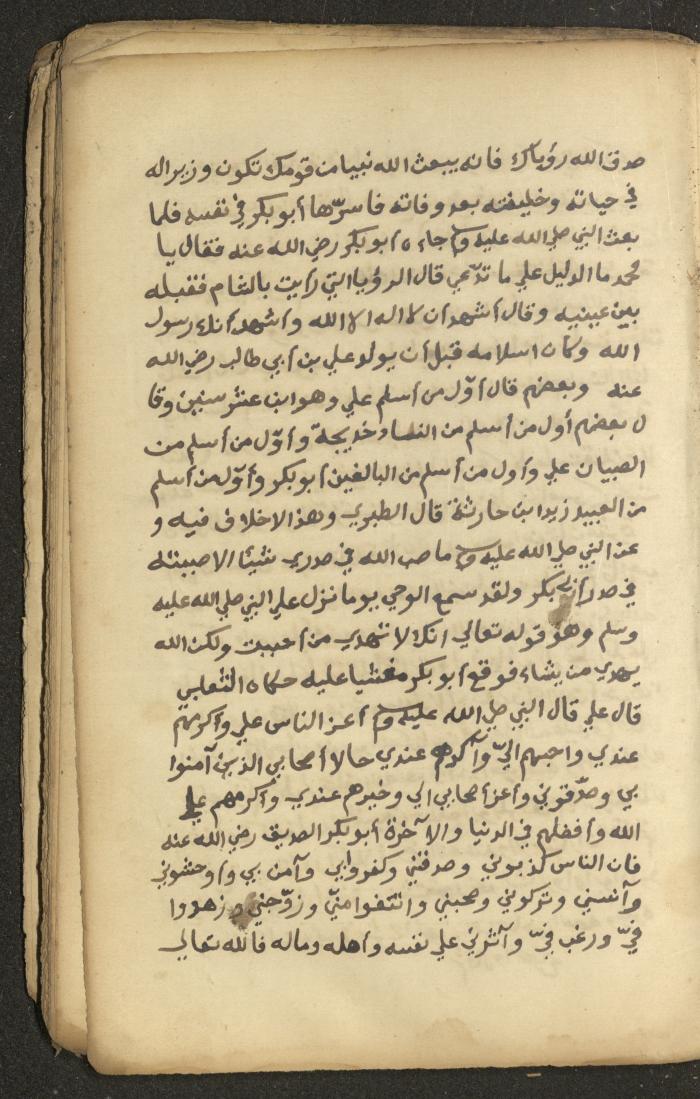 صدق الله رؤياك فانه يبعث الله نبيا من قومك تكون وزيراله
في حياته وخليفته بعد وفاته فاسرّها أبو بكر في نفسه فلما
بعث النبي صلي الله عليه وسلم جاءه ابو بكر رضي الله عنه فقال يا
محمد ما الدليل علي ما تدّعي قال الرؤيا التي رأيت بالشام فقبله
بين عينيه وقال أشهد ان لا اله الا الله وأشهد أنك رسول
الله وكان اسلامه قبل أن يولد علي بن أبي طالب رضي الله
عنه وبعضهم قال أوّل من أسلم علي وهو ابن عشر سنين وقا
ل بعضهم أول من أسلم من النساء خديجة وأوّل من أسلم من
الصبيان علي وأول من أسلم من البالغين أبو بكر وأوّل من أسلم
من العبيد زيد ابن حارثة قال الطبري وهذا لاخلاف فيه و
عن النبي صلي الله عليه وسلم ما صب الله في صدري شيئا الا صببته
في صدر أبي بكر ولقد سمع الوحي يوما نزل علي النبي صلي الله عليه
وسلم وهو قوله تعالي انك لا تهدي من أحببت ولكن الله
يهدي من يشاء فوقع أبو بكر مغشيا عليه حكاه الثعلبي
قال علي قال النبي صلي الله عليه وسلم أعز الناس علي وأكرمهم
عندي واحبهم اليّ وأكرمهم عندي حالا أصحابي الذين آمنوا
بي وصدّقوني وأعز أصحابي الي وخيرهم عندي وأكرمهم علي
الله وأفضلهم في الدنيا والآخرة أبو بكر الصديق رضي الله عنه
فان الناس كذبوني وصدقني وكفروا بي وآمن بي وأوحشوني
وآنسني وتركوني وصحبني وانتفوا منيّ وزوّجني وزهدوا
فيّ ورغب فيّ وآثرني علي نفسه وأهله وماله فالله تعالي